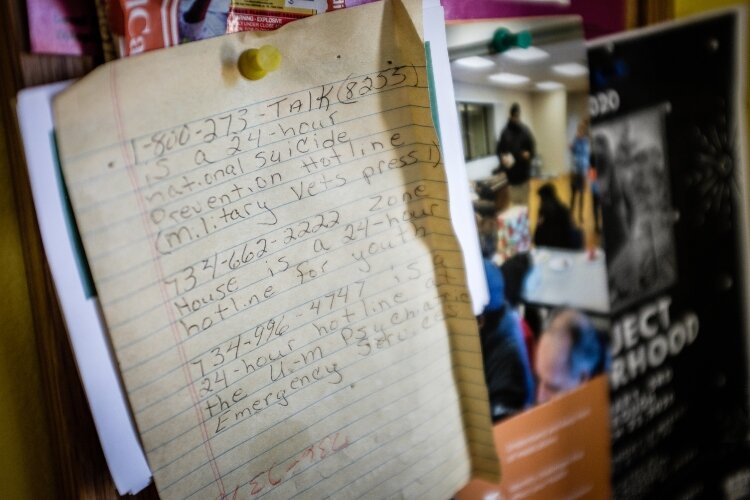 WARNING - EXPLOSIVE
1-800-273-TALK (8255)
is a 24-hour
national suicide
prevention hotline
(military vets press 1)
734-662-2222 Zone
House is a 24-hour
hotline for youth
734-996-4747 is a
24-hour hotline at
the U-M Psychiatric
Emergency Services.
2020
JECT
RHOOD